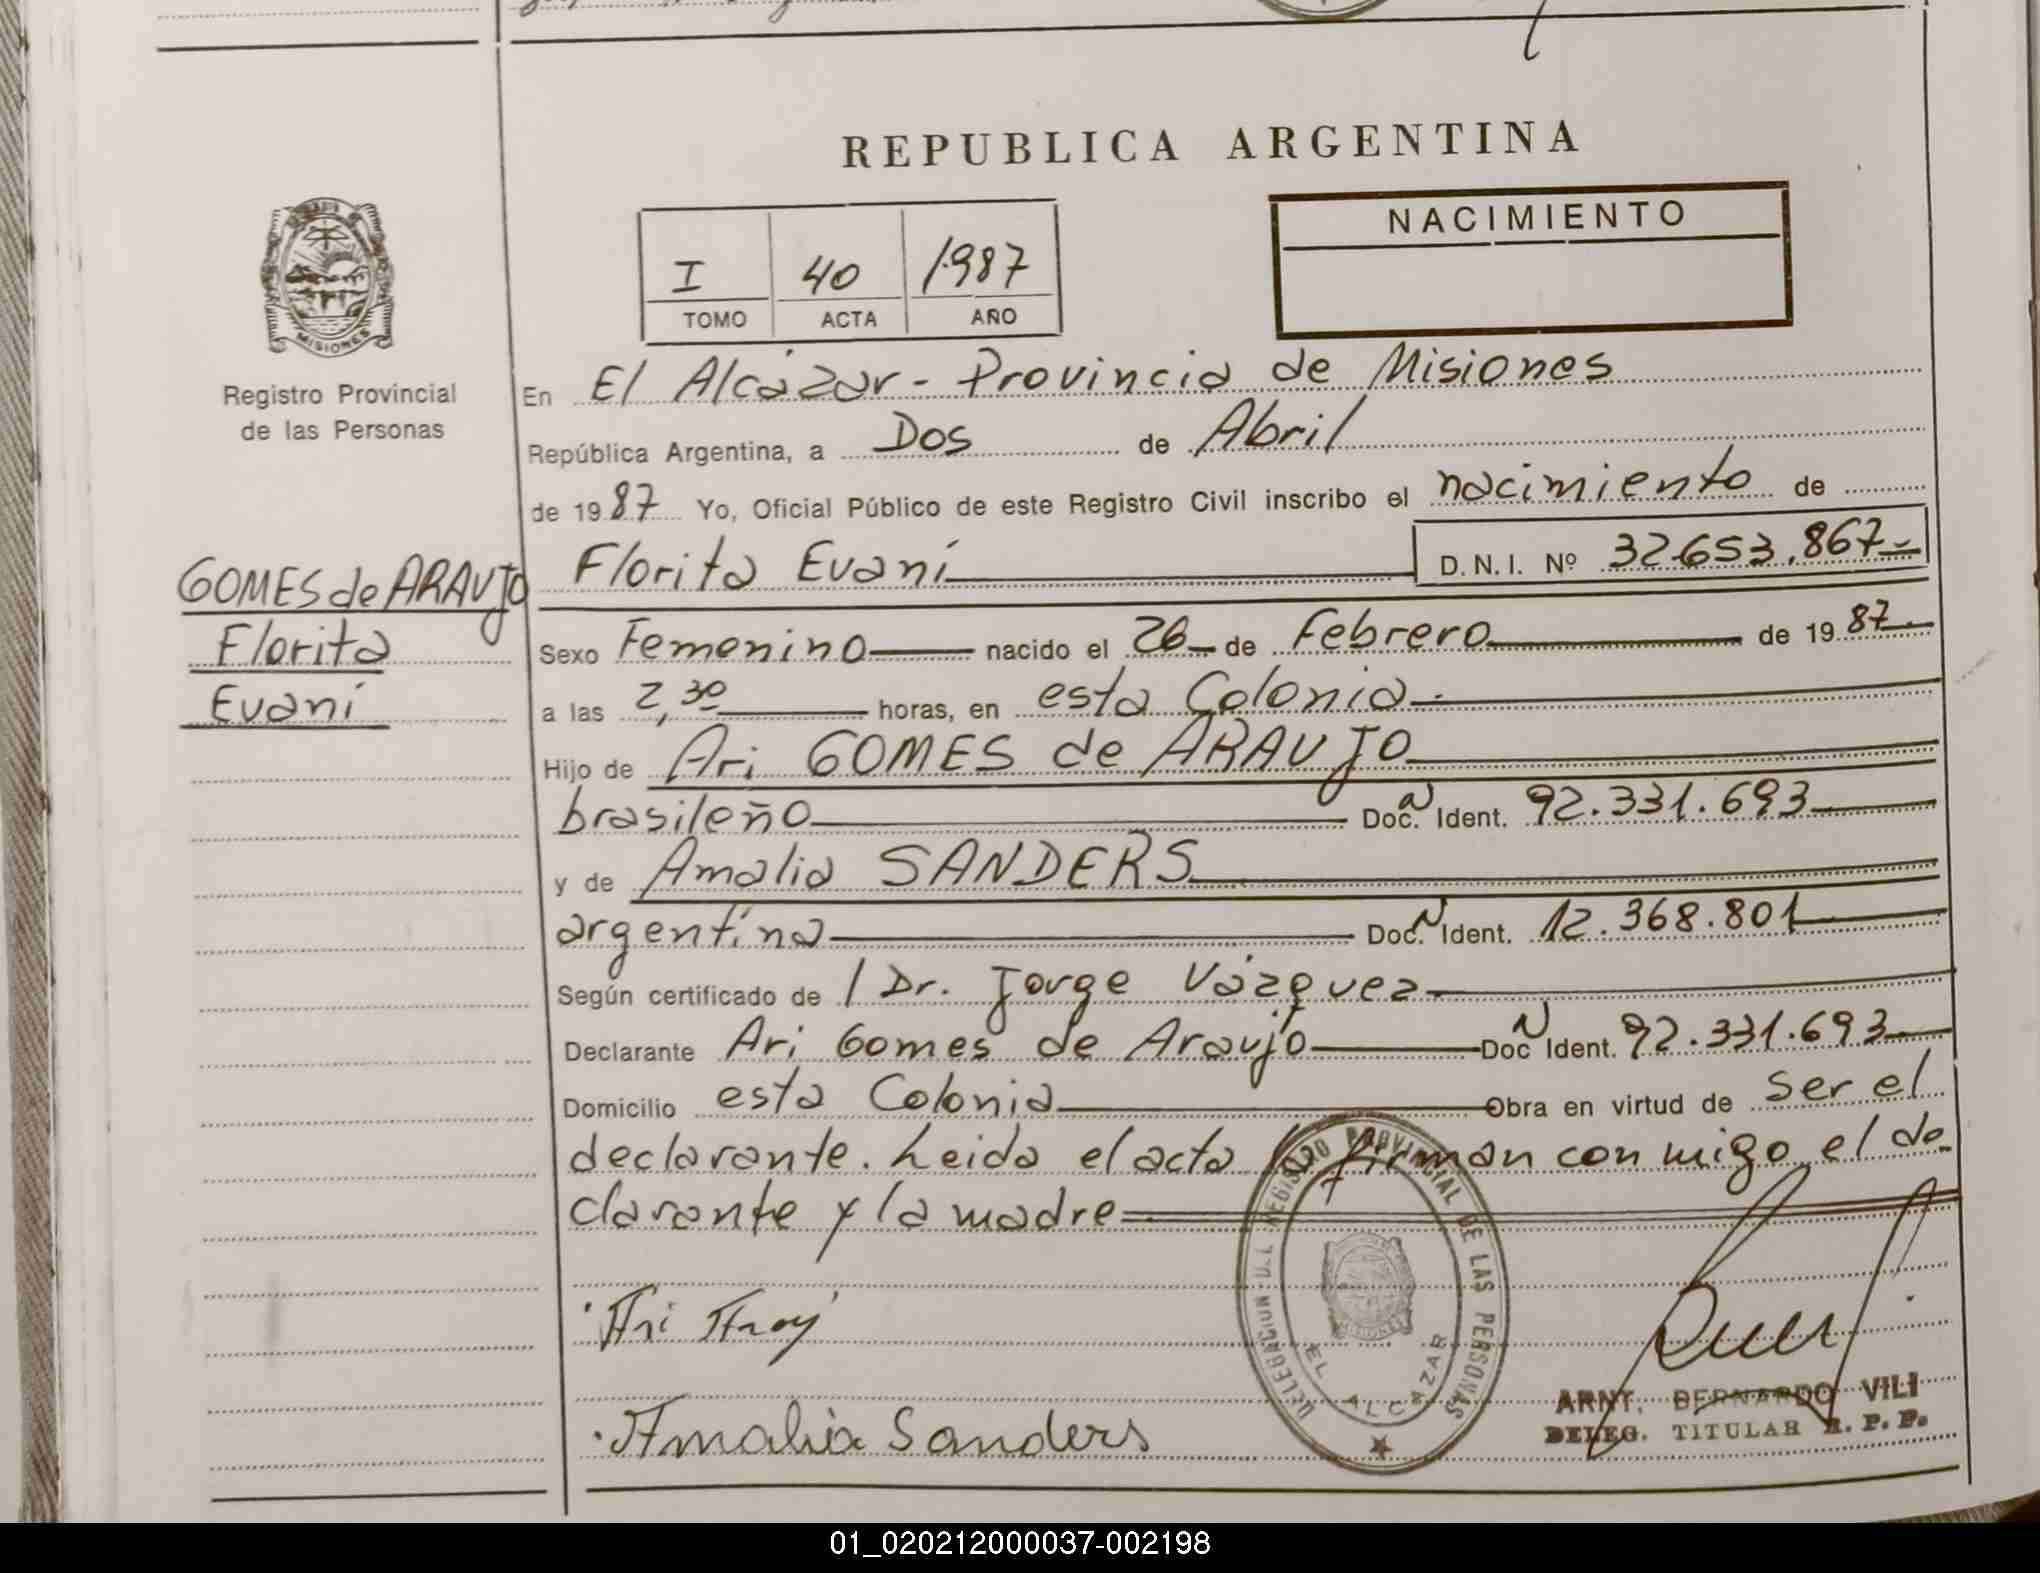 REPUBLICA ARGENTINA
NACIMIENTO
I 40 1987
TOMO ACTA AÑO
MISIONES
Registro Provincial
de las Personas
En El Alcázar - Provincia de Misiones
República Argentina, a Dos de Abril
de 1987 Yo, Oficial Público de este Registro Civil inscribo el nacimiento de
GOMES de ARAUJO
Florita
Evaní
Florita Evaní D.N.I. Nº 32.653.867-
Sexo Femenino nacido el 26 de Febrero de 1987.
a las 2,30 horas, en esta Colonia.
Hijo de Ari GOMES de ARAUJO
brasileño Doc. N Ident. 92.331.693
y de Amalia SANDERS
argentina Doc. N Ident. 12.368.801
Según certificado de / Dr. Jorge Vázquez
Declarante Ari Gomes de Araujo Doc N Ident. 92.331.693
Domicilio esta Colonia Obra en virtud de ser el
declarante. Leida el acta la firman conmigo el de-
clarante y la madre
DELEGACION D.L. REGISTRO PROVINCIAL DE LAS PERSONAS
MISIONES
EL ALCAZAR
Ari
Amalia Sanders
ARNT, BERNARDO VILI
DELEG. TITULAR R. P. P.
01_020212000037-002198